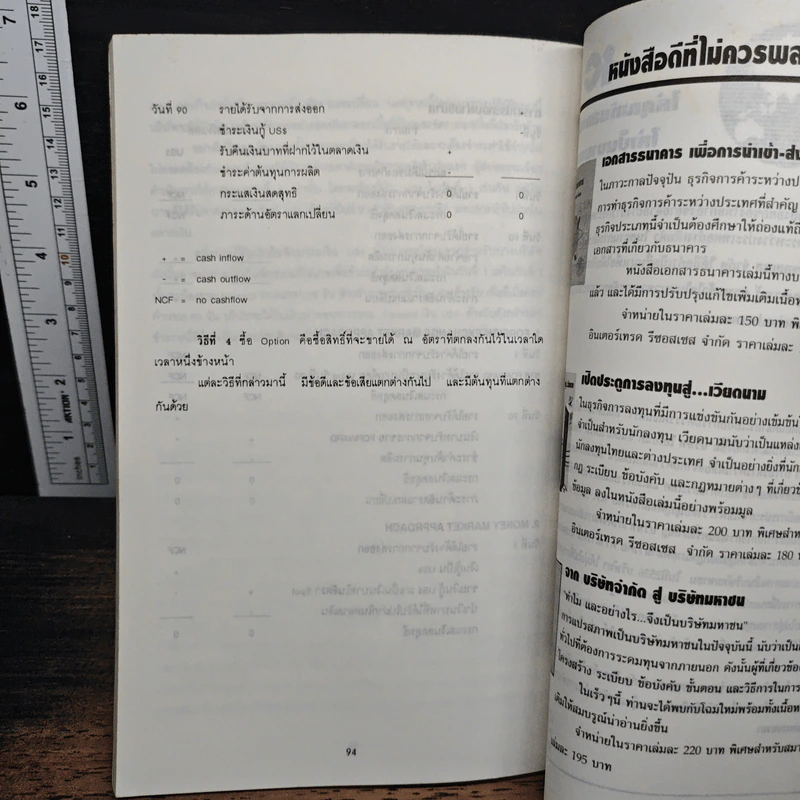 วันที่ 90 รายได้รับจากการส่งออก +
ชำระเงินกู้ US$ -
รับคืนเงินบาทที่ฝากไว้ในตลาดเงิน +
ชำระค่าต้นทุนการผลิต -
กระแสเงินสดสุทธิ 0 0
ภาระด้านอัตราแลกเปลี่ยน 0 0
+ = cash inflow
- = cash outflow
NCF = no cashflow
วิธีที่ 4 ซื้อ Option คือซื้อสิทธิ์ที่จะขายได้ ณ อัตราที่ตกลงกันไว้ในเวลาใด
เวลาหนึ่งข้างหน้า
แต่ละวิธีที่กล่าวมานี้ มีข้อดีและข้อเสียแตกต่างกันไป และมีต้นทุนที่แตกต่าง
กันด้วย
94
หนังสือดีที่ไม่ควรพล
เอกสารธนาคาร เพื่อการนำเข้า-ส่ง
ในภาวะกาลปัจจุบัน ธุรกิจการค้าระหว่างป
การทำธุรกิจการค้าระหว่างประเทศที่สำคัญ
ธุรกิจประเภทนี้จำเป็นต้องศึกษาให้ถ่องแท้ถึ
เอกสารที่เกี่ยวกับธนาคาร
หนังสือเอกสารธนาคารเล่มนี้ทางบ
แล้ว และได้มีการปรับปรุงแก้ไขเพิ่มเติมเนื้อห
จำหน่ายในราคาเล่มละ 150 บาท พิ
อินเตอร์เทรด รีซอสเซส จำกัด ราคาเล่มละ
เปิดประตูการลงทุนสู่...เวียดนาม
ในธุรกิจการลงทุนที่มีการแข่งขันกันอย่างเข้มข้นใ
จำเป็นสำหรับนักลงทุน เวียดนามนับว่าเป็นแหล่ง
นักลงทุนไทยและต่างประเทศ จำเป็นอย่างยิ่งที่นัก
กฎ ระเบียบ ข้อบังคับ และกฎหมายต่างๆ ที่เกี่ยวข้
ข้อมูล ลงในหนังสือเล่มนี้อย่างพร้อมมูล
จำหน่ายในราคาเล่มละ 200 บาท พิเศษสำห
อินเตอร์เทรด รีซอสเซส จำกัด ราคาเล่มละ 180
จาก บริษัทจำกัด สู่ บริษัทมหาชน
"ทำไม และอย่างไร...จึงเป็นบริษัทมหาชน"
การแปรสภาพเป็นบริษัทมหาชนในปัจจุบันนี้ นับว่าเป็น
ทั่วไปที่ต้องการระดมทุนจากภายนอก ดังนั้นผู้ที่เกี่ยวข้อง
โครงสร้าง ระเบียบ ข้อบังคับ ขั้นตอน และวิธีการในการ
ในเร็วๆนี้ ท่านจะได้พบกับโฉมใหม่พร้อมทั้งเนื้อห
เติมให้สมบูรณ์น่าอ่านยิ่งขึ้น
จำหน่ายในราคาเล่มละ 220 บาท พิเศษสำหรับสมา
เล่มละ 195 บาท